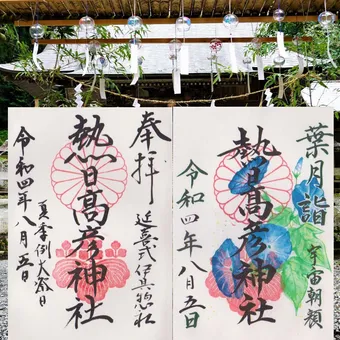 葉月詣
宇宙朝顔
熱日高彦神社
令和四年八月五日
奉拝
延喜式伊具惣社
熱日高彦神社
夏季例大祭日
令和四年八月五日